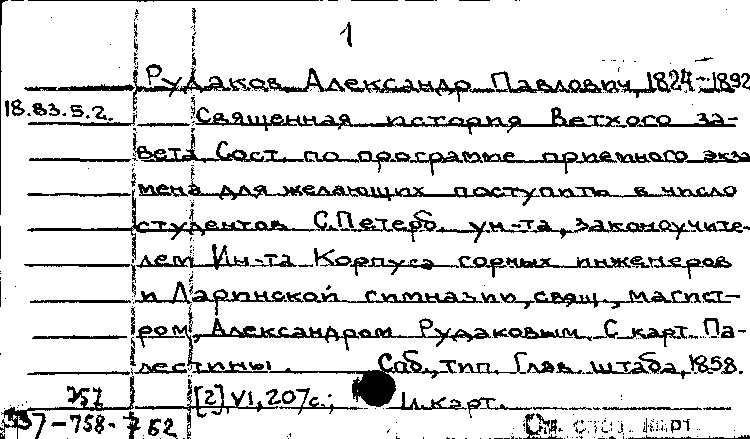 1
Рудаков Александр Павлович, 1824-1892
18.83.5.2. Священная история Ветхого за-
вета. Сост. по программе приемного экза
мена для желающих поступить в число
студентов С.Петерб. ун-та, законоучите-
лем Ин-та Корпуса горных инженеров
и Ларинской гимназии, свящ., магист-
ром, Александром Рудаковым. С карт. Па-
лестины. Спб., тип. Глав. штаба, 1858.
757 [2], VI, 207 с.; 1 л. карт.
557-758-752